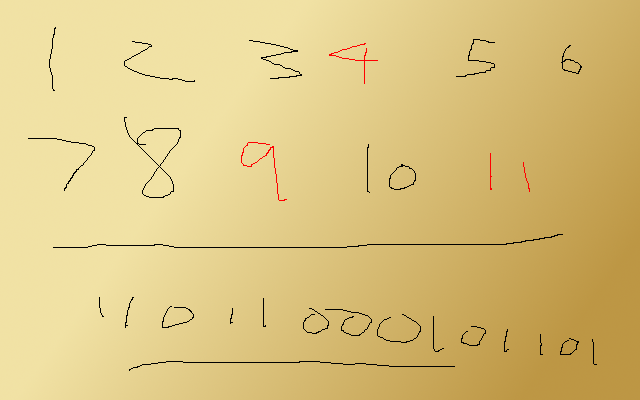 1 2 3 4 5 6
7 8 9 10 11
11011000101101